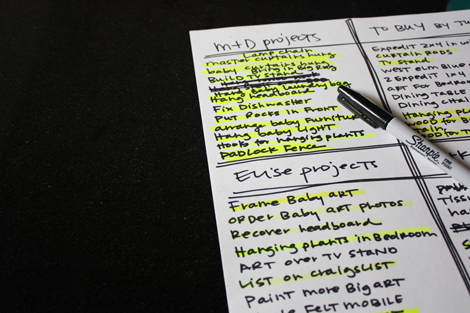 M+D projects
Lamp chain
master curtains hung
baby curtains
Build TV Stand
Hang Baby
Hang headboard
Fix Dishwasher
Put Rocks in Front
arrange baby Furniture
Hang baby Light
Hooks for hanging plants
Padlock Fence
Elise projects
Frame Baby ART
ORDer Baby ART PHOTOS
Recover headboard
Hanging plants in Bedroom
ART over TV STAND
LIST on craigsLIST
PAINT more Big ART
FeLT mobile
TO BUY BY
Expedit 2x4
curtain rods
TV stand
west elm
2 Expedit 1x4
ART For
Dining Table
Dining
Hanging
wood for
Tiss
Sharpie